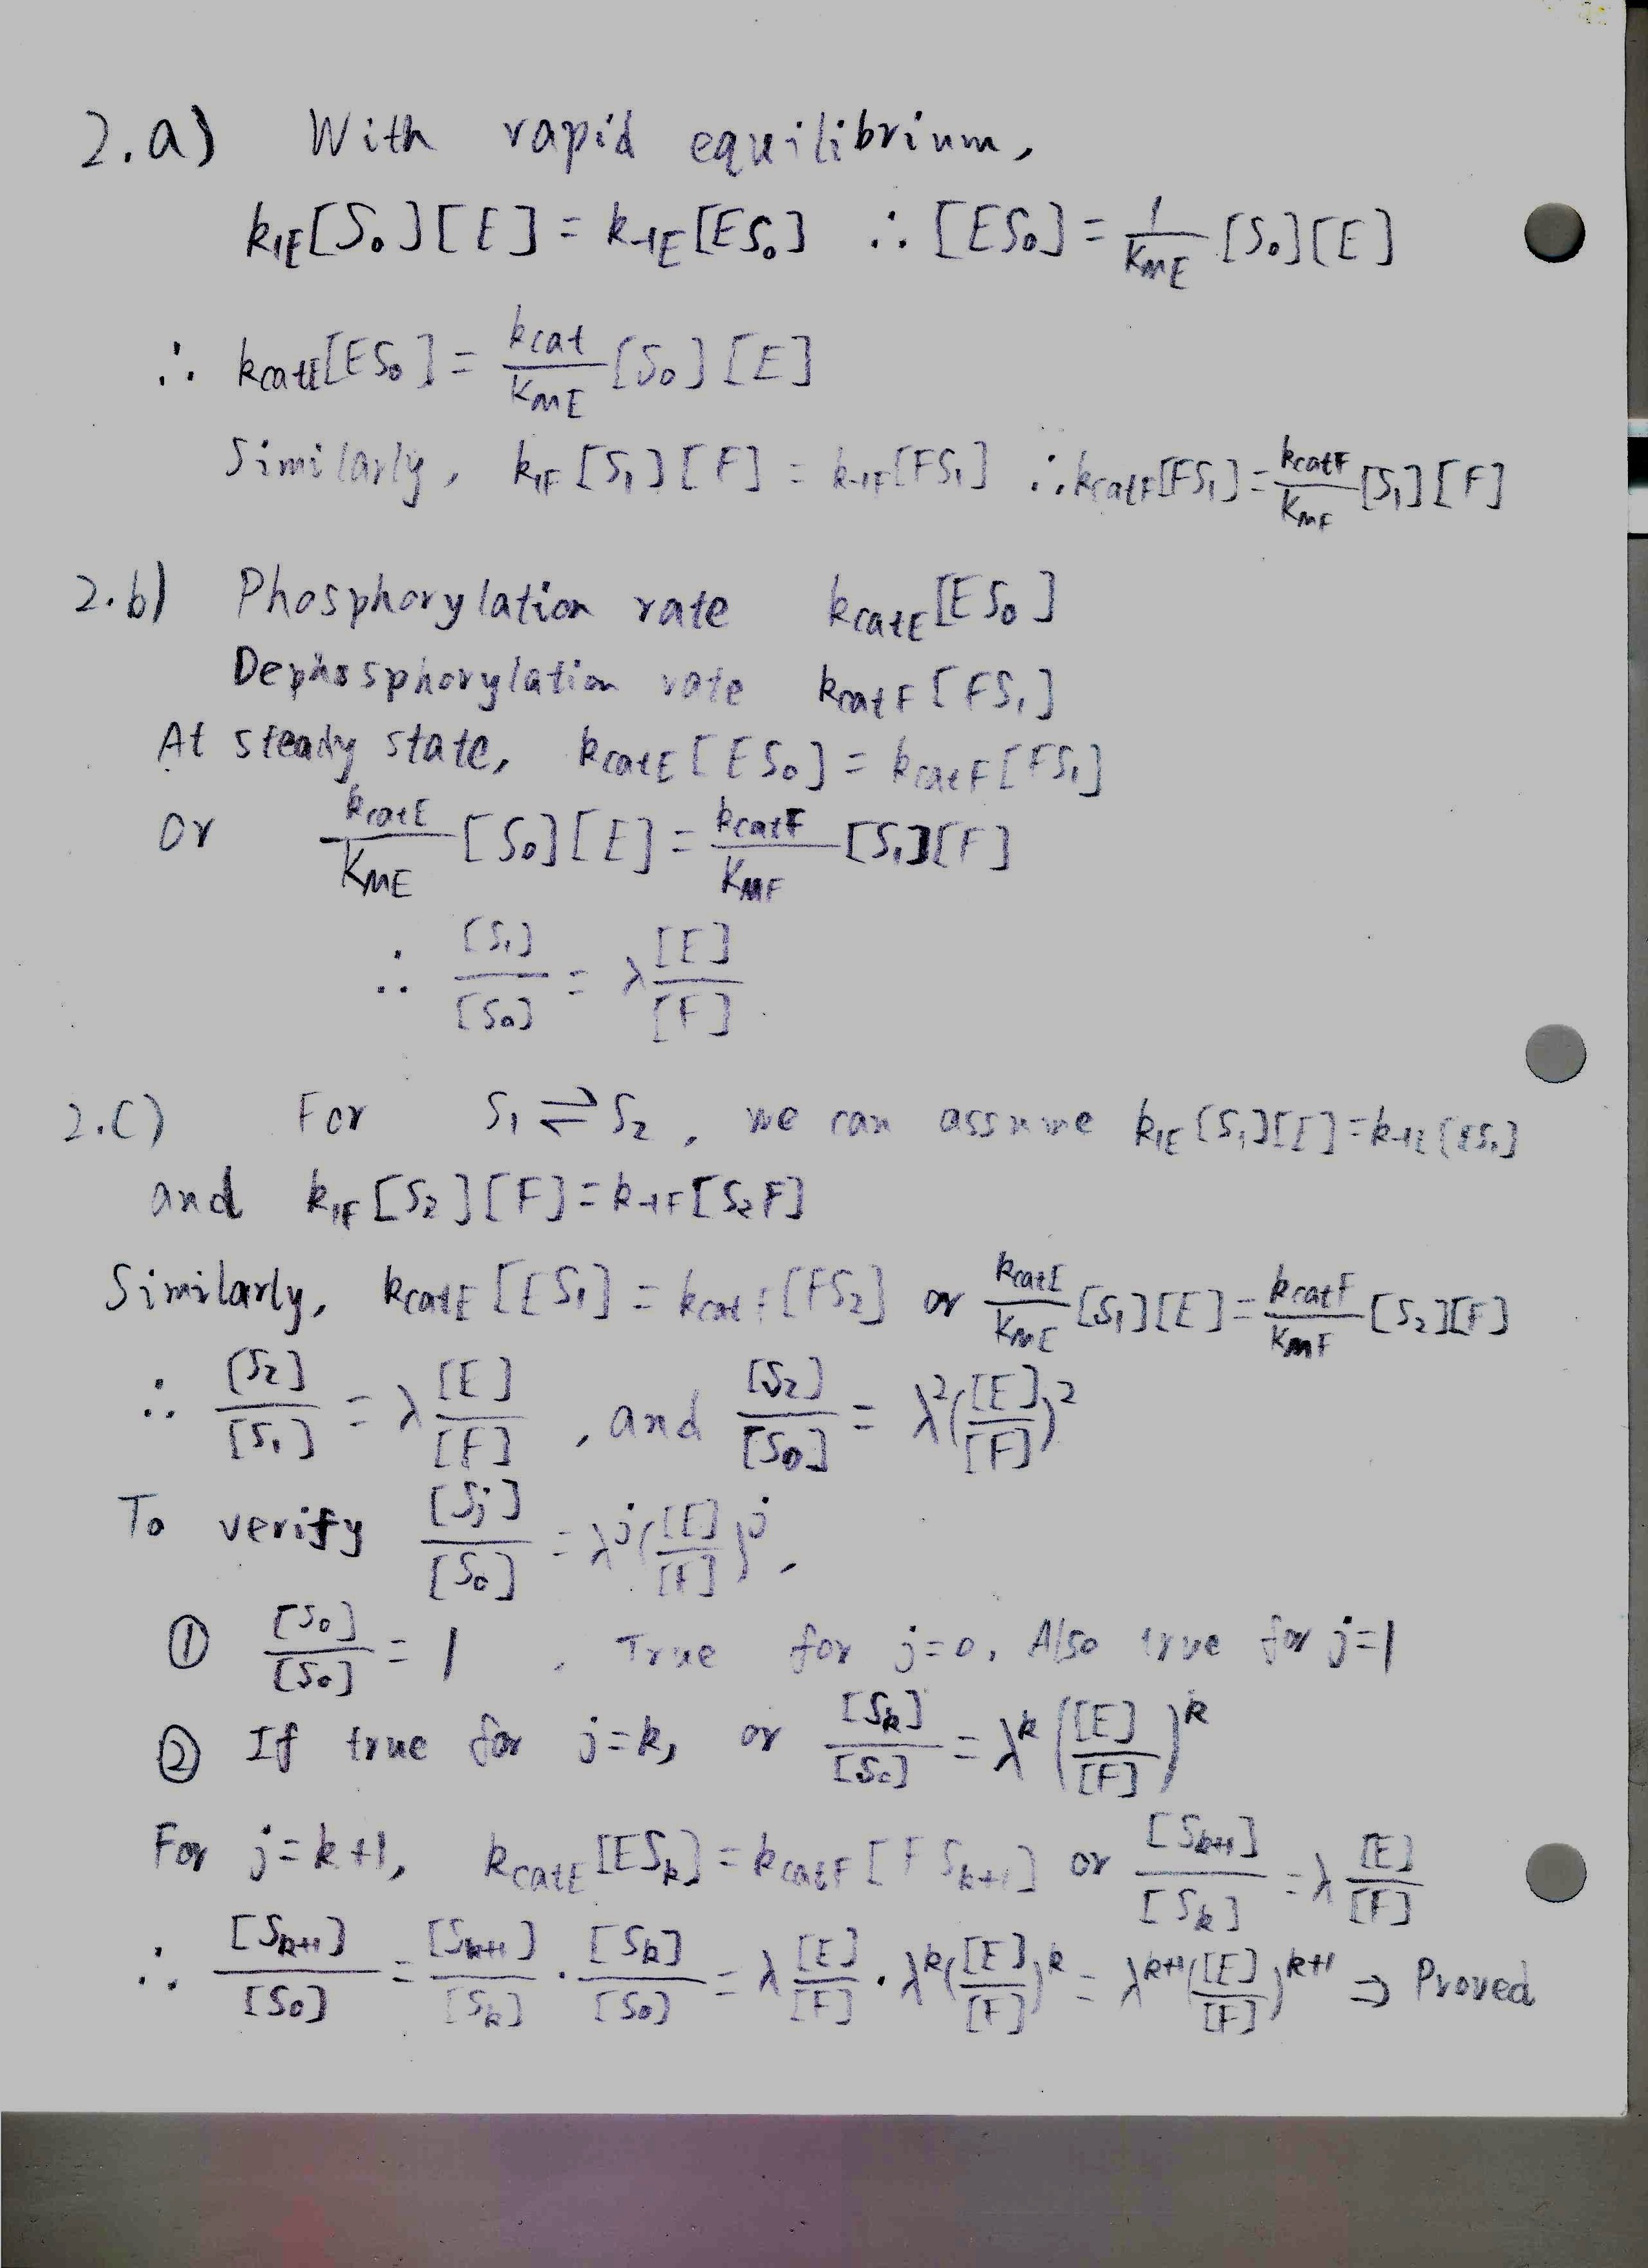 2.a) With rapid equilibrium,
k₁E[S₀][E] = k₋₁E[ES₀] ∴ [ES₀] = 1/K_ME [S₀][E]
∴ k_catE[ES₀] = k_cat/K_ME [S₀][E]
Similarly, k₁F[S₁][F] = k₋₁F[FS₁] ∴ k_catF[FS₁] = k_catF/K_MF [S₁][F]
2.b) Phosphorylation rate k_catE[ES₀]
Dephosphorylation rate k_catF[FS₁]
At steady state, k_catE[ES₀] = k_catF[FS₁]
or k_catE/K_ME [S₀][E] = k_catF/K_MF [S₁][F]
∴ [S₁]/[S₀] = λ [E]/[F]
2.c) For S₁ ⇌ S₂, we can assume k₁E[S₁][E] = k₋₁E[ES₁]
and k₁F[S₂][F] = k₋₁F[S₂F]
Similarly, k_catE[ES₁] = k_catF[FS₂] or k_catE/K_ME [S₁][E] = k_catF/K_MF [S₂][F]
∴ [S₂]/[S₁] = λ [E]/[F], and [S₂]/[S₀] = λ²([E]/[F])²
To verify [Sj]/[S₀] = λ^j([E]/[F])^j,
① [S₀]/[S₀] = 1, True for j=0. Also true for j=1
② If true for j=k, or [Sk]/[S₀] = λ^k([E]/[F])^k
For j=k+1, k_catE[ESk] = k_catF[FSk+1] or [Sk+1]/[Sk] = λ [E]/[F]
∴ [Sk+1]/[S₀] = [Sk+1]/[Sk] · [Sk]/[S₀] = λ [E]/[F] · λ^k([E]/[F])^k = λ^(k+1)([E]/[F])^(k+1) ⇒ Proved